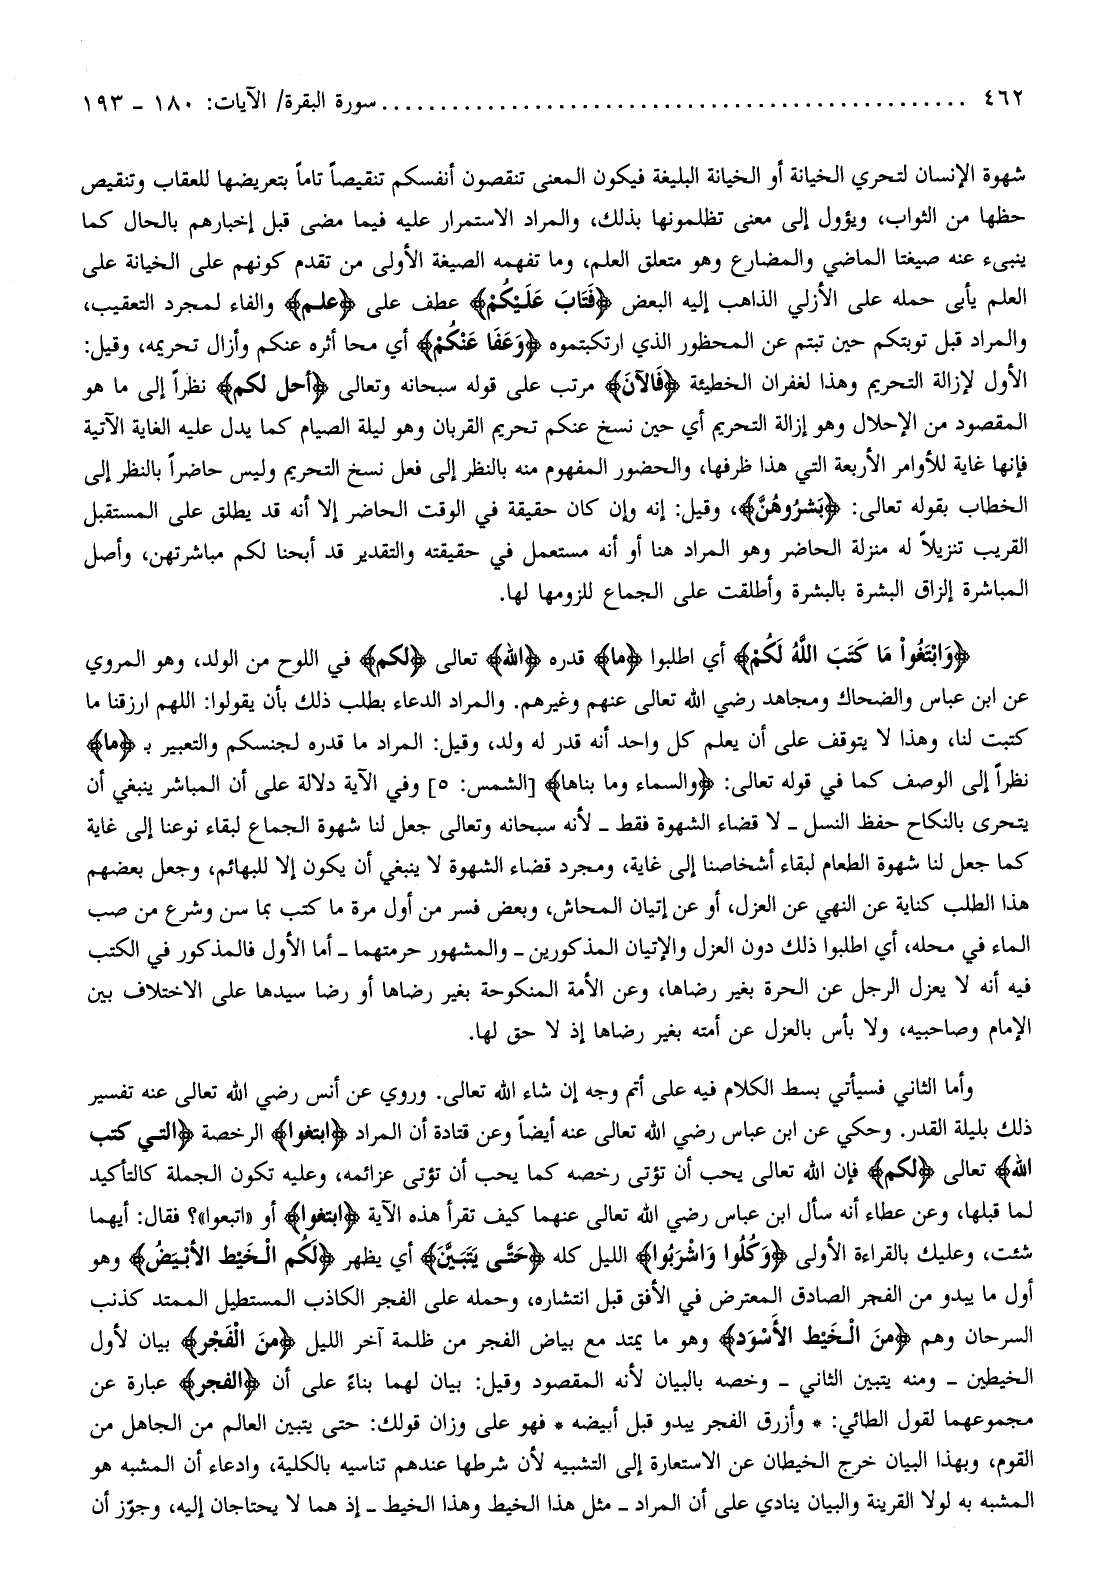 ٤٦٢ .................................................. سورة البقرة/ الآيات: ١٨٠ ـ ١٩٣
شهوة الإنسان لتحري الخيانة أو الخيانة البليغة فيكون المعنى تنقصون أنفسكم تنقيصاً تاماً بتعريضها للعقاب وتنقيص
حظها من الثواب، ويؤول إلى معنى تظلمونها بذلك، والمراد الاستمرار عليه فيما مضى قبل إخبارهم بالحال كما
ينبىء عنه صيغتا الماضي والمضارع وهو متعلق العلم، وما تفهمه الصيغة الأولى من تقدم كونهم على الخيانة على
العلم يأبى حمله على الأزلي الذاهب إليه البعض ﴿فَتَابَ عَلَيْكُمْ﴾ عطف على ﴿علم﴾ والفاء لمجرد التعقيب،
والمراد قبل توبتكم حين تبتم عن المحظور الذي ارتكبتموه ﴿وَعَفَا عَنْكُمْ﴾ أي محا أثره عنكم وأزال تحريمه، وقيل:
الأول لإزالة التحريم وهذا لغفران الخطيئة ﴿فَالآنَ﴾ مرتب على قوله سبحانه وتعالى ﴿أحل لكم﴾ نظراً إلى ما هو
المقصود من الإحلال وهو إزالة التحريم أي حين نسخ عنكم تحريم القربان وهو ليلة الصيام كما يدل عليه الغاية الآتية
فإنها غاية للأوامر الأربعة التي هذا ظرفها، والحضور المفهوم منه بالنظر إلى فعل نسخ التحريم وليس حاضراً بالنظر إلى
الخطاب بقوله تعالى: ﴿بَشرُوهُنَّ﴾، وقيل: إنه وإن كان حقيقة في الوقت الحاضر إلا أنه قد يطلق على المستقبل
القريب تنزيلاً له منزلة الحاضر وهو المراد هنا أو أنه مستعمل في حقيقته والتقدير قد أبحنا لكم مباشرتهن، وأصل
المباشرة إلزاق البشرة بالبشرة وأطلقت على الجماع للزومها لها.
﴿وَابْتَغُواْ مَا كَتَبَ اللَّهُ لَكُمْ﴾ أي اطلبوا ﴿ما﴾ قدره ﴿الله﴾ تعالى ﴿لكم﴾ في اللوح من الولد، وهو المروي
عن ابن عباس والضحاك ومجاهد رضي الله تعالى عنهم وغيرهم. والمراد الدعاء بطلب ذلك بأن يقولوا: اللهم ارزقنا ما
كتبت لنا، وهذا لا يتوقف على أن يعلم كل واحد أنه قدر له ولد، وقيل: المراد ما قدره لجنسكم والتعبير بـ ﴿ما﴾
نظراً إلى الوصف كما في قوله تعالى: ﴿والسماء وما بناها﴾ [الشمس: ٥] وفي الآية دلالة على أن المباشر ينبغي أن
يتحرى بالنكاح حفظ النسل ـ لا قضاء الشهوة فقط ـ لأنه سبحانه وتعالى جعل لنا شهوة الجماع لبقاء نوعنا إلى غاية
كما جعل لنا شهوة الطعام لبقاء أشخاصنا إلى غاية، ومجرد قضاء الشهوة لا ينبغي أن يكون إلا للبهائم، وجعل بعضهم
هذا الطلب كناية عن النهي عن العزل، أو عن إتيان المحاش، وبعض فسر من أول مرة ما كتب بما سن وشرع من صب
الماء في محله، أي اطلبوا ذلك دون العزل والإتيان المذكورين ـ والمشهور حرمتهما ـ أما الأول فالمذكور في الكتب
فيه أنه لا يعزل الرجل عن الحرة بغير رضاها، وعن الأمة المنكوحة بغير رضاها أو رضا سيدها على الاختلاف بين
الإمام وصاحبيه، ولا بأس بالعزل عن أمته بغير رضاها إذ لا حق لها.
وأما الثاني فسيأتي بسط الكلام فيه على أتم وجه إن شاء الله تعالى. وروي عن أنس رضي الله تعالى عنه تفسير
ذلك بليلة القدر. وحكي عن ابن عباس رضي الله تعالى عنه أيضاً وعن قتادة أن المراد ﴿ابتغوا﴾ الرخصة ﴿التي كتب
الله﴾ تعالى ﴿لكم﴾ فإن الله تعالى يحب أن تؤتى رخصه كما يحب أن تؤتى عزائمه، وعليه تكون الجملة كالتأكيد
لما قبلها، وعن عطاء أنه سأل ابن عباس رضي الله تعالى عنهما كيف تقرأ هذه الآية ﴿ابتغوا﴾ أو «اتبعوا»؟ فقال: أيهما
شئت، وعليك بالقراءة الأولى ﴿وَكُلُوا وَاشْرَبُوا﴾ الليل كله ﴿حَتَّى يَتَبَيَّنَ﴾ أي يظهر ﴿لَكُم الْخَيْط الأَبْيَضُ﴾ وهو
أول ما يبدو من الفجر الصادق المعترض في الأفق قبل انتشاره، وحمله على الفجر الكاذب المستطيل الممتد كذنب
السرحان وهم ﴿منَ الْخَيْط الأَسْوَد﴾ وهو ما يمتد مع بياض الفجر من ظلمة آخر الليل ﴿منَ الْفَجْر﴾ بيان لأول
الخيطين ـ ومنه يتبين الثاني ـ وخصه بالبيان لأنه المقصود وقيل: بيان لهما بناءً على أن ﴿الفجر﴾ عبارة عن
مجموعهما لقول الطائي: * وأزرق الفجر يبدو قبل أبيضه * فهو على وزان قولك: حتى يتبين العالم من الجاهل من
القوم، وبهذا البيان خرج الخيطان عن الاستعارة إلى التشبيه لأن شرطها عندهم تناسيه بالكلية، وادعاء أن المشبه هو
المشبه به لولا القرينة والبيان ينادي على أن المراد ـ مثل هذا الخيط وهذا الخيط ـ إذ هما لا يحتاجان إليه، وجوّز أن